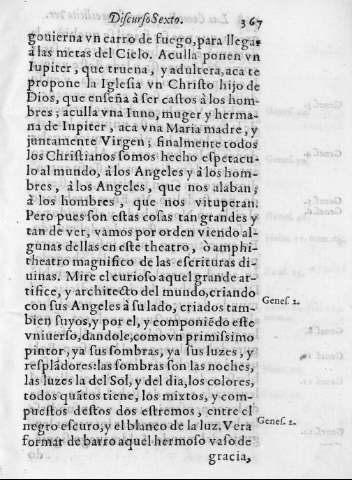 Discurso Sexto. 367
gouierna vn carro de fuego, para llegar
à las metas del Cielo. Aculla ponen vn
Iupiter, que truena, y adultera, aca te
propone la Iglesia vn Christo hijo de
Dios, que enseña à ser castos à los hom-
bres; aculla vna Iuno, muger y herma-
na de Iupiter, aca vna Maria madre, y
juntamente Virgen; finalmente todos
los Christianos somos hecho espetacu-
lo al mundo, à los Angeles y à los hom-
bres, à los Angeles, que nos alaban;
à los hombres, que nos vituperan.
Pero pues son estas cosas tan grandes y
tan de ver, vamos por orden viendo al-
gunas dellas en este theatro, ò amphi-
theatro magnifico de las escrituras di-
uinas. Mire el curioso aquel grande ar-
tifice, y architecto del mundo, criando
con sus Angeles à su lado, criados tam-
Genes. 1.
bien suyos, y por el, y componiẽdo este
vniuerso, dandole, como vn primissimo
pintor, ya sus sombras, ya sus luzes, y
resplãdores: las sombras son las noches,
las luzes la del Sol, y del dia, los colores,
todos quãtos tiene, los mixtos, y com-
puestos destos dos estremos, entre el
negro escuro, y el blanco de la luz. Vera
Genes. 2.
formar de barro aquel hermoso vaso de
gracia,